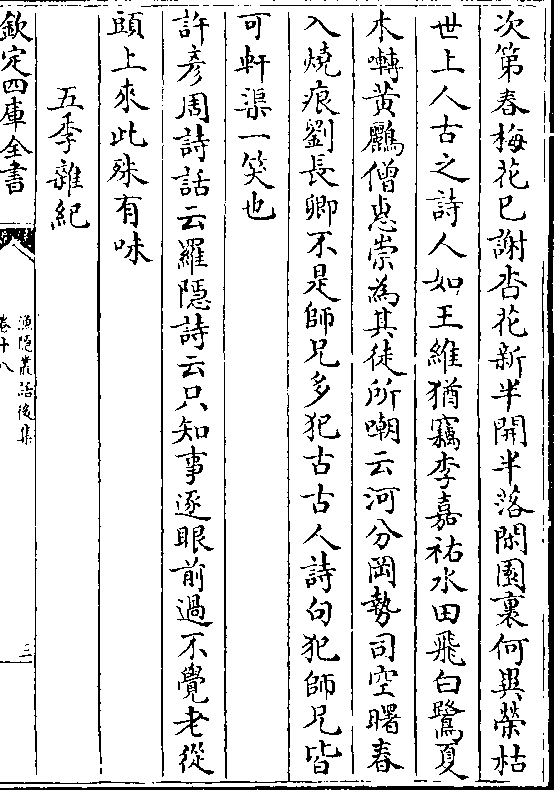 次第春梅花已謝杏花新半開半落閑園裏何異榮枯
世上人古之詩人如王維猶竊李嘉祐水田飛白鷺夏
木囀黃鸝僧惠崇為其徒所嘲云河分岡勢司空曙春
入燒痕劉長卿不是師兄多犯古古人詩句犯師兄皆
可軒渠一笑也
許彥周詩話云羅隱詩云只知事逐眼前過不覺老從
頭上來此殊有味
五季雜紀
欽定四庫全書
漁隱叢話後集
卷十八
三